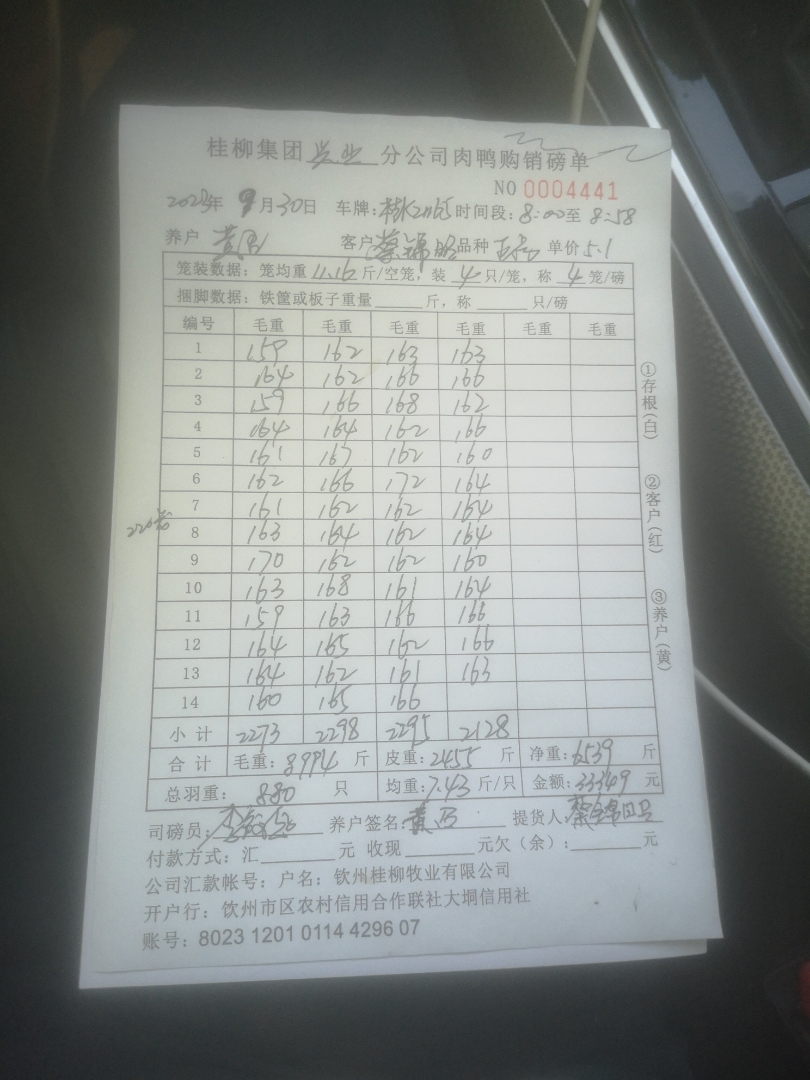 桂柳集团 兴业 分公司肉鸭购销磅单
NO 0004441
2023年 9月30日 车牌: 时间段: 8:00至 8:58
养户 黄 客户 蔡锦昭 品种 单价 5.1
笼装数据: 笼均重 11.16 斤/空笼, 装 4 只/笼, 称 4 笼/磅
捆脚数据: 铁筐或板子重量 斤, 称 只/磅
编号 毛重 毛重 毛重 毛重 毛重 毛重
1 159 162 163 163
2 164 162 166 166
3 159 166 168 162
4 164 164 162 166
5 161 167 162 160
6 162 166 172 164
7 161 162 162 164
8 163 164 162 164
9 170 162 162 160
10 163 168 161 164
11 159 163 166 166
12 164 165 162 166
13 164 162 161 163
14 160 165 166
小 计 2273 2298 2295 2128
合 计 毛重: 8994 斤 皮重: 2455 斤 净重: 6539 斤
总羽重: 880 只 均重: 7.43 斤/只 金额: 33349 元
司磅员: 养户签名: 黄 提货人: 蔡锦
付款方式: 汇 元 收现 元欠(余): 元
公司汇款帐号: 户名: 钦州桂柳牧业有限公司
开户行: 钦州市区农村信用合作联社大垌信用社
账号: 8023 1201 0114 4296 07
①存根(白)
②客户(红)
③养户(黄)
220